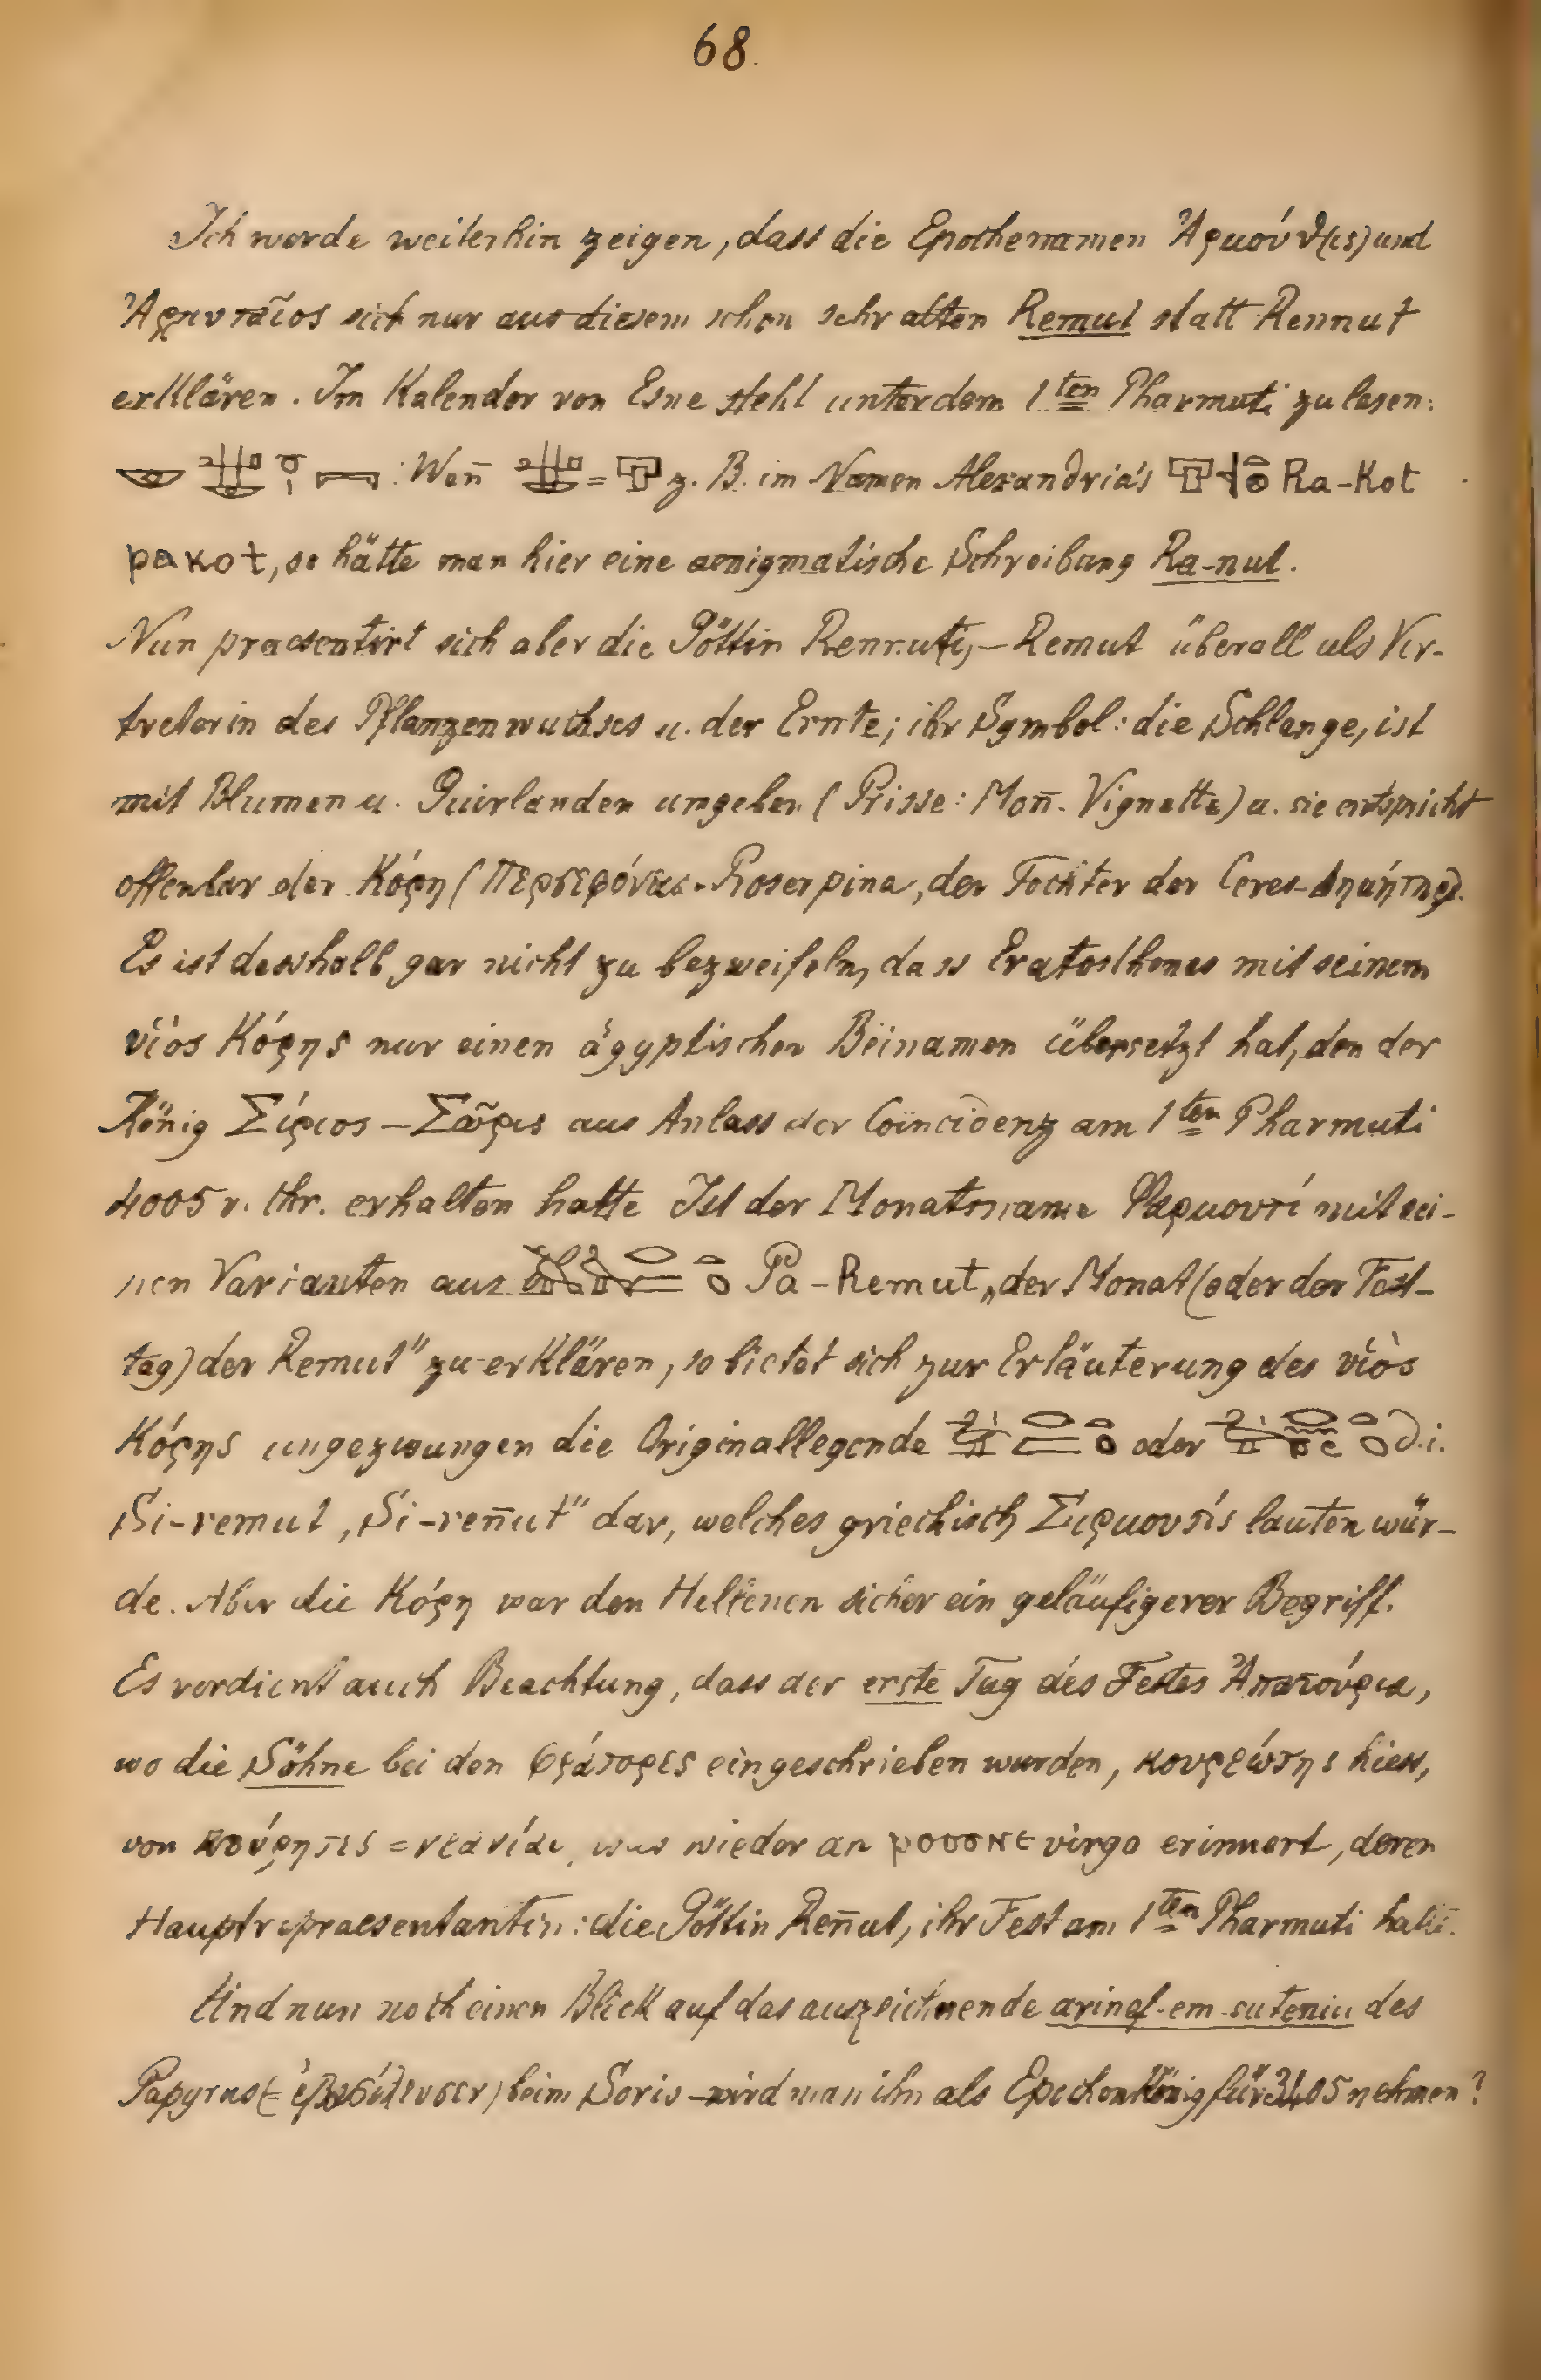 68.
Ich werde weiterhin zeigen, dass die Epochenamen Ἁρμούθ(ις) und
Ἁρμυταῖος sich nur aus diesem schon sehr alten Remut statt Rennut
erklären. Im Kalender von Esne steht unter dem 1ten Pharmuti zu lesen:
: Wen̄ = z. B. im Namen Alexandria's Ra-Kot
ρακοt, so hätte man hier eine aenigmatische Schreibung Ra-nut.
Nun praesentirt sich aber die Göttin Rennuti,-Remut überall als Ver-
treterin des Pflanzenwuchses u. der Ernte; ihr Symbol: die Schlange, ist
mit Blumen u. Guirlanden umgeben (Prisse: Mon̄. Vignette) u. sie entspricht
offenbar der Κόρη ( Proserpina, der Tochter der Ceres-Δημήτηρ).
Es ist desshalb gar nicht zu bezweifeln, dass Eratosthenes mit seinem
υἱὸς Κόρης nur einen ägyptischen Beinamen übersetzt hat, den der
König Σίριος-Σῶρις aus Anlass der Coïncidenz am 1ten Pharmuti
4005 v. Chr. erhalten hatte Ist der Monatsname Φαρμουτί mit sei-
nen Varianten aus Pa-Remut „der Monat (oder der Fest-
tag) der Remut" zu erklären, so bietet sich zur Erläuterung des υἱὸς
Κόρης ungezwungen die Originallegende oder d.i.
Si-remut, Si-ren̄ut" dar, welches griechisch Σιρμουτίς lauten wür-
de. Aber die Κόρη war den Hellenen sicher ein geläufigerer Begriff.
Es verdient auch Beachtung, dass der erste Tag des Festes Ἀπατούρια,
wo die Söhne bei den φράτορες eingeschrieben wurden, κουρεώτης hiess,
von κούρητες = νεανίαι, was wieder an ρооοΝЄ virgo erinnert, deren
Hauptrepraesentantin: die Göttin Ren̄ut, ihr Fest am 1ten Pharmuti hatte.
Und nun noch einen Blick auf das auszeichnende arinef-em-suteniu des
Papyrus (= ) beim Soris - wird man ihn als Epochenkönig für 3405 nehmen?